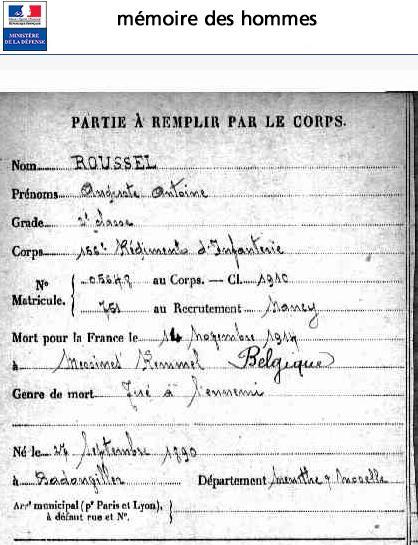 MINISTÈRE
DE LA DÉFENSE
mémoire des hommes
PARTIE À REMPLIR PAR LE CORPS.
Nom ROUSSEL
Prénoms Auguste Antoine
Grade 2e classe
Corps Régiment d'Infanterie
No Matricule. { au Corps. — Cl. 1910
751 au Recrutement Nancy
Mort pour la France le 14 novembre 1914
à Messines Kemmel Belgique
Genre de mort Tué à l'ennemi
Né le 27 Septembre 1890
à Département Meurthe & Moselle
Arrt municipal (pr Paris et Lyon), }
à défaut rue et No.